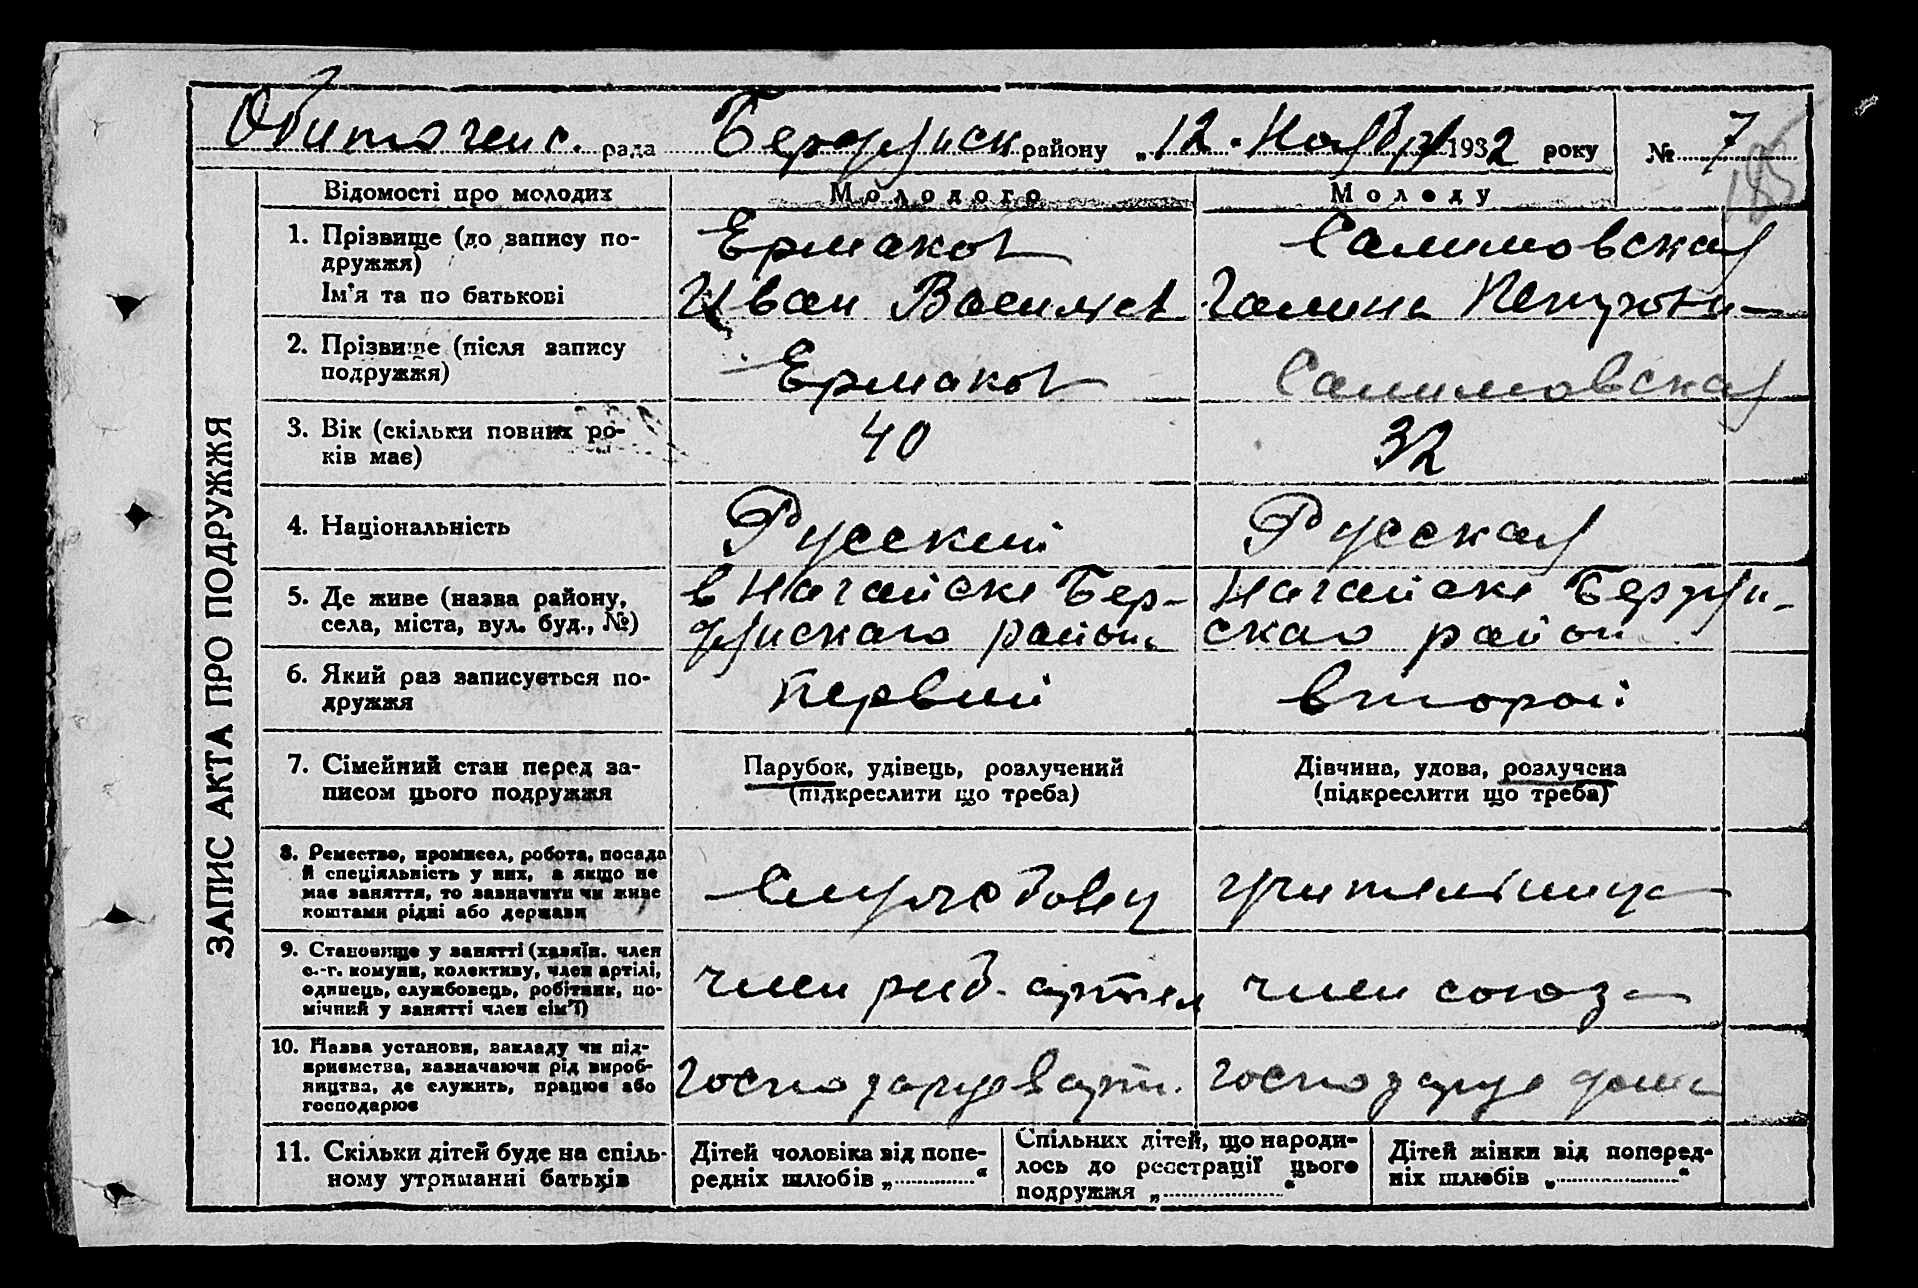 Обиточенс. рада Бердянск району „12." Ноября 1932 року № 7
185
ЗАПИС АКТА ПРО ПОДРУЖЖЯ
Відомості про молодих Молодого Молоду
1. Прізвище (до запису по-
дружжя) Ермаков Салимовская
Ім'я та по батькові Иван Василиев Галина
2. Прізвище (після запису
подружжя) Ермаков Салимовская
3. Вік (скільки повних ро-
ків має) 40 32
4. Національність Русский Русская
5. Де живе (назва району, в Нагайске Бер- Нагайске Бердян-
села, міста, вул. буд., №) дянскаго район. скаго район
6. Який раз записується по-
дружжя первий второй
7. Сімейний стан перед за- Парубок, удівець, розлучений Дівчина, удова, розлучена
писом цього подружжя (підкреслити що треба) (підкреслити що треба)
8. Ремество, промисел, робота, посада
й спеціяльність у них, а якщо не
має заняття, то зазначити чи живе
коштами рідні або держави Службовец учителниця
9. Становище у занятті (хазяїн. член
с.-г. комуни, колективу, член артілі,
одинець, службовець, робітник, по-
мічний у занятті член сім'ї) член риб. артел член союза
10. Назва установи, закладу чи під-
приємства, зазначаючи рід вироб-
ництва, де служить, працює або
господарює господарує в арт. господарує дома
11. Скільки дітей буде на спіль-
ному утриманні батьків
Дітей чоловіка від попе-
редніх шлюбів „..............“
Спільних дітей, що народи-
лось до реєстрації цього
подружжя „..............“
Дітей жінки від поперед-
ніх шлюбів „..............“